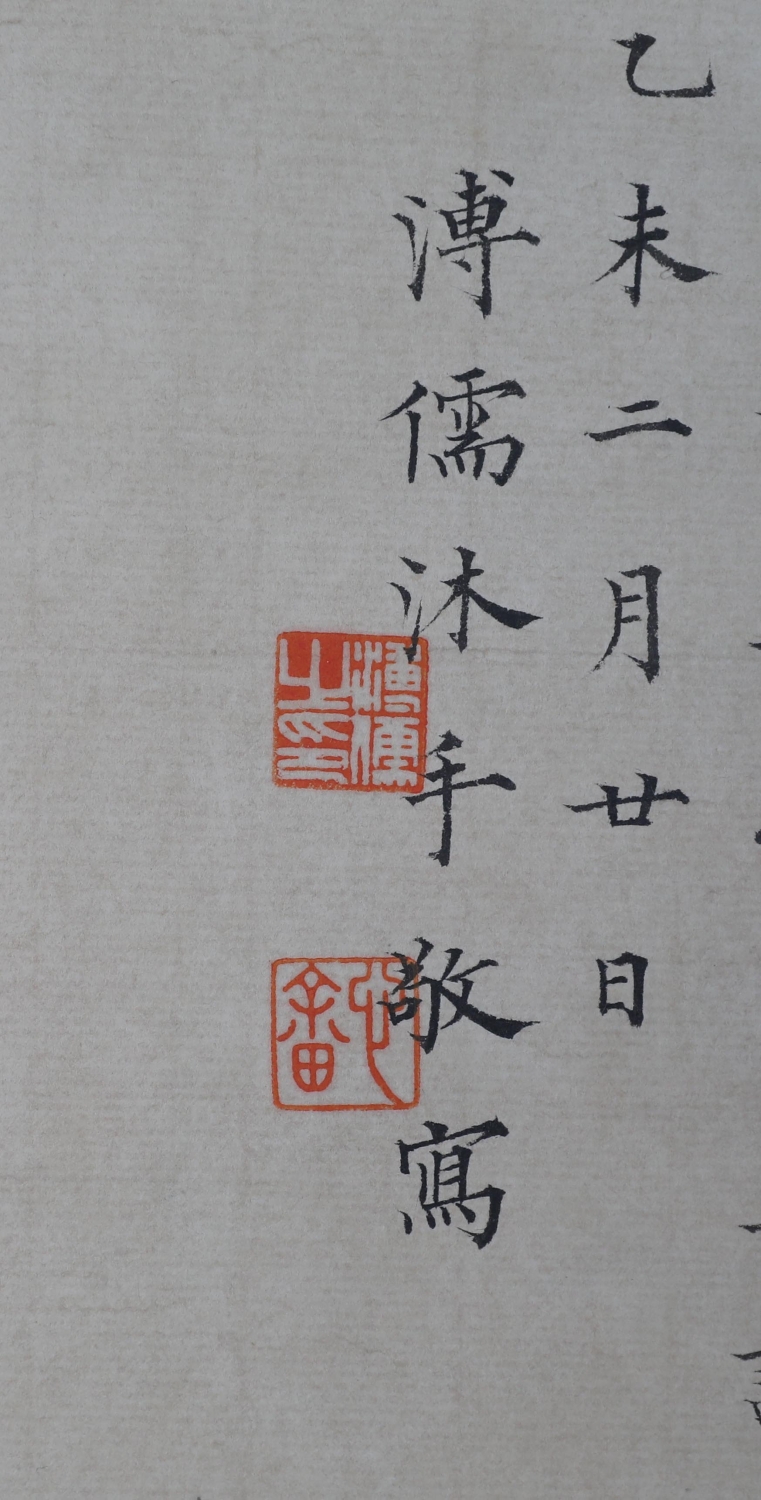 乙未二月廿日
溥儒沐手敬寫
溥儒之印
心畬